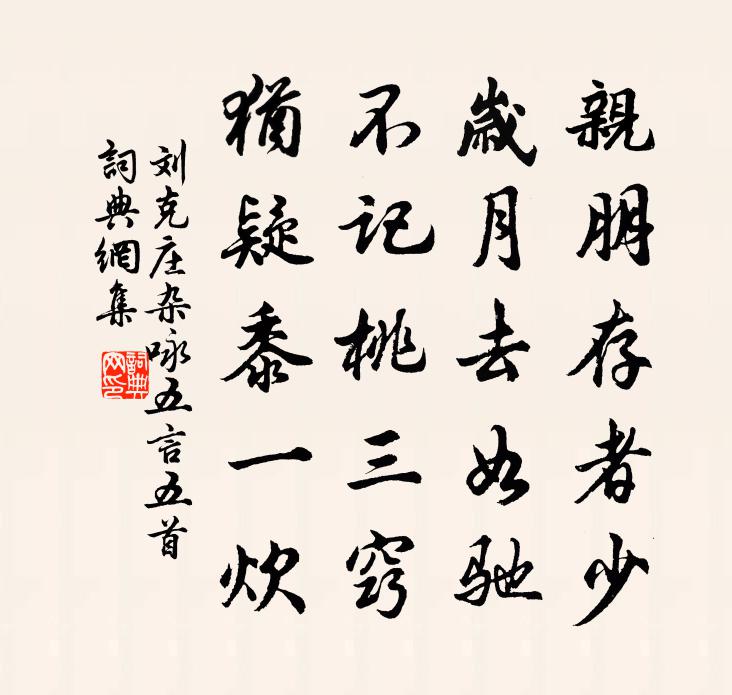 親朋存者少
歲月去如馳
不記桃三窍
猶疑黍一炊
刘克庄杂咏五言五首
詞典網集
詞典网印